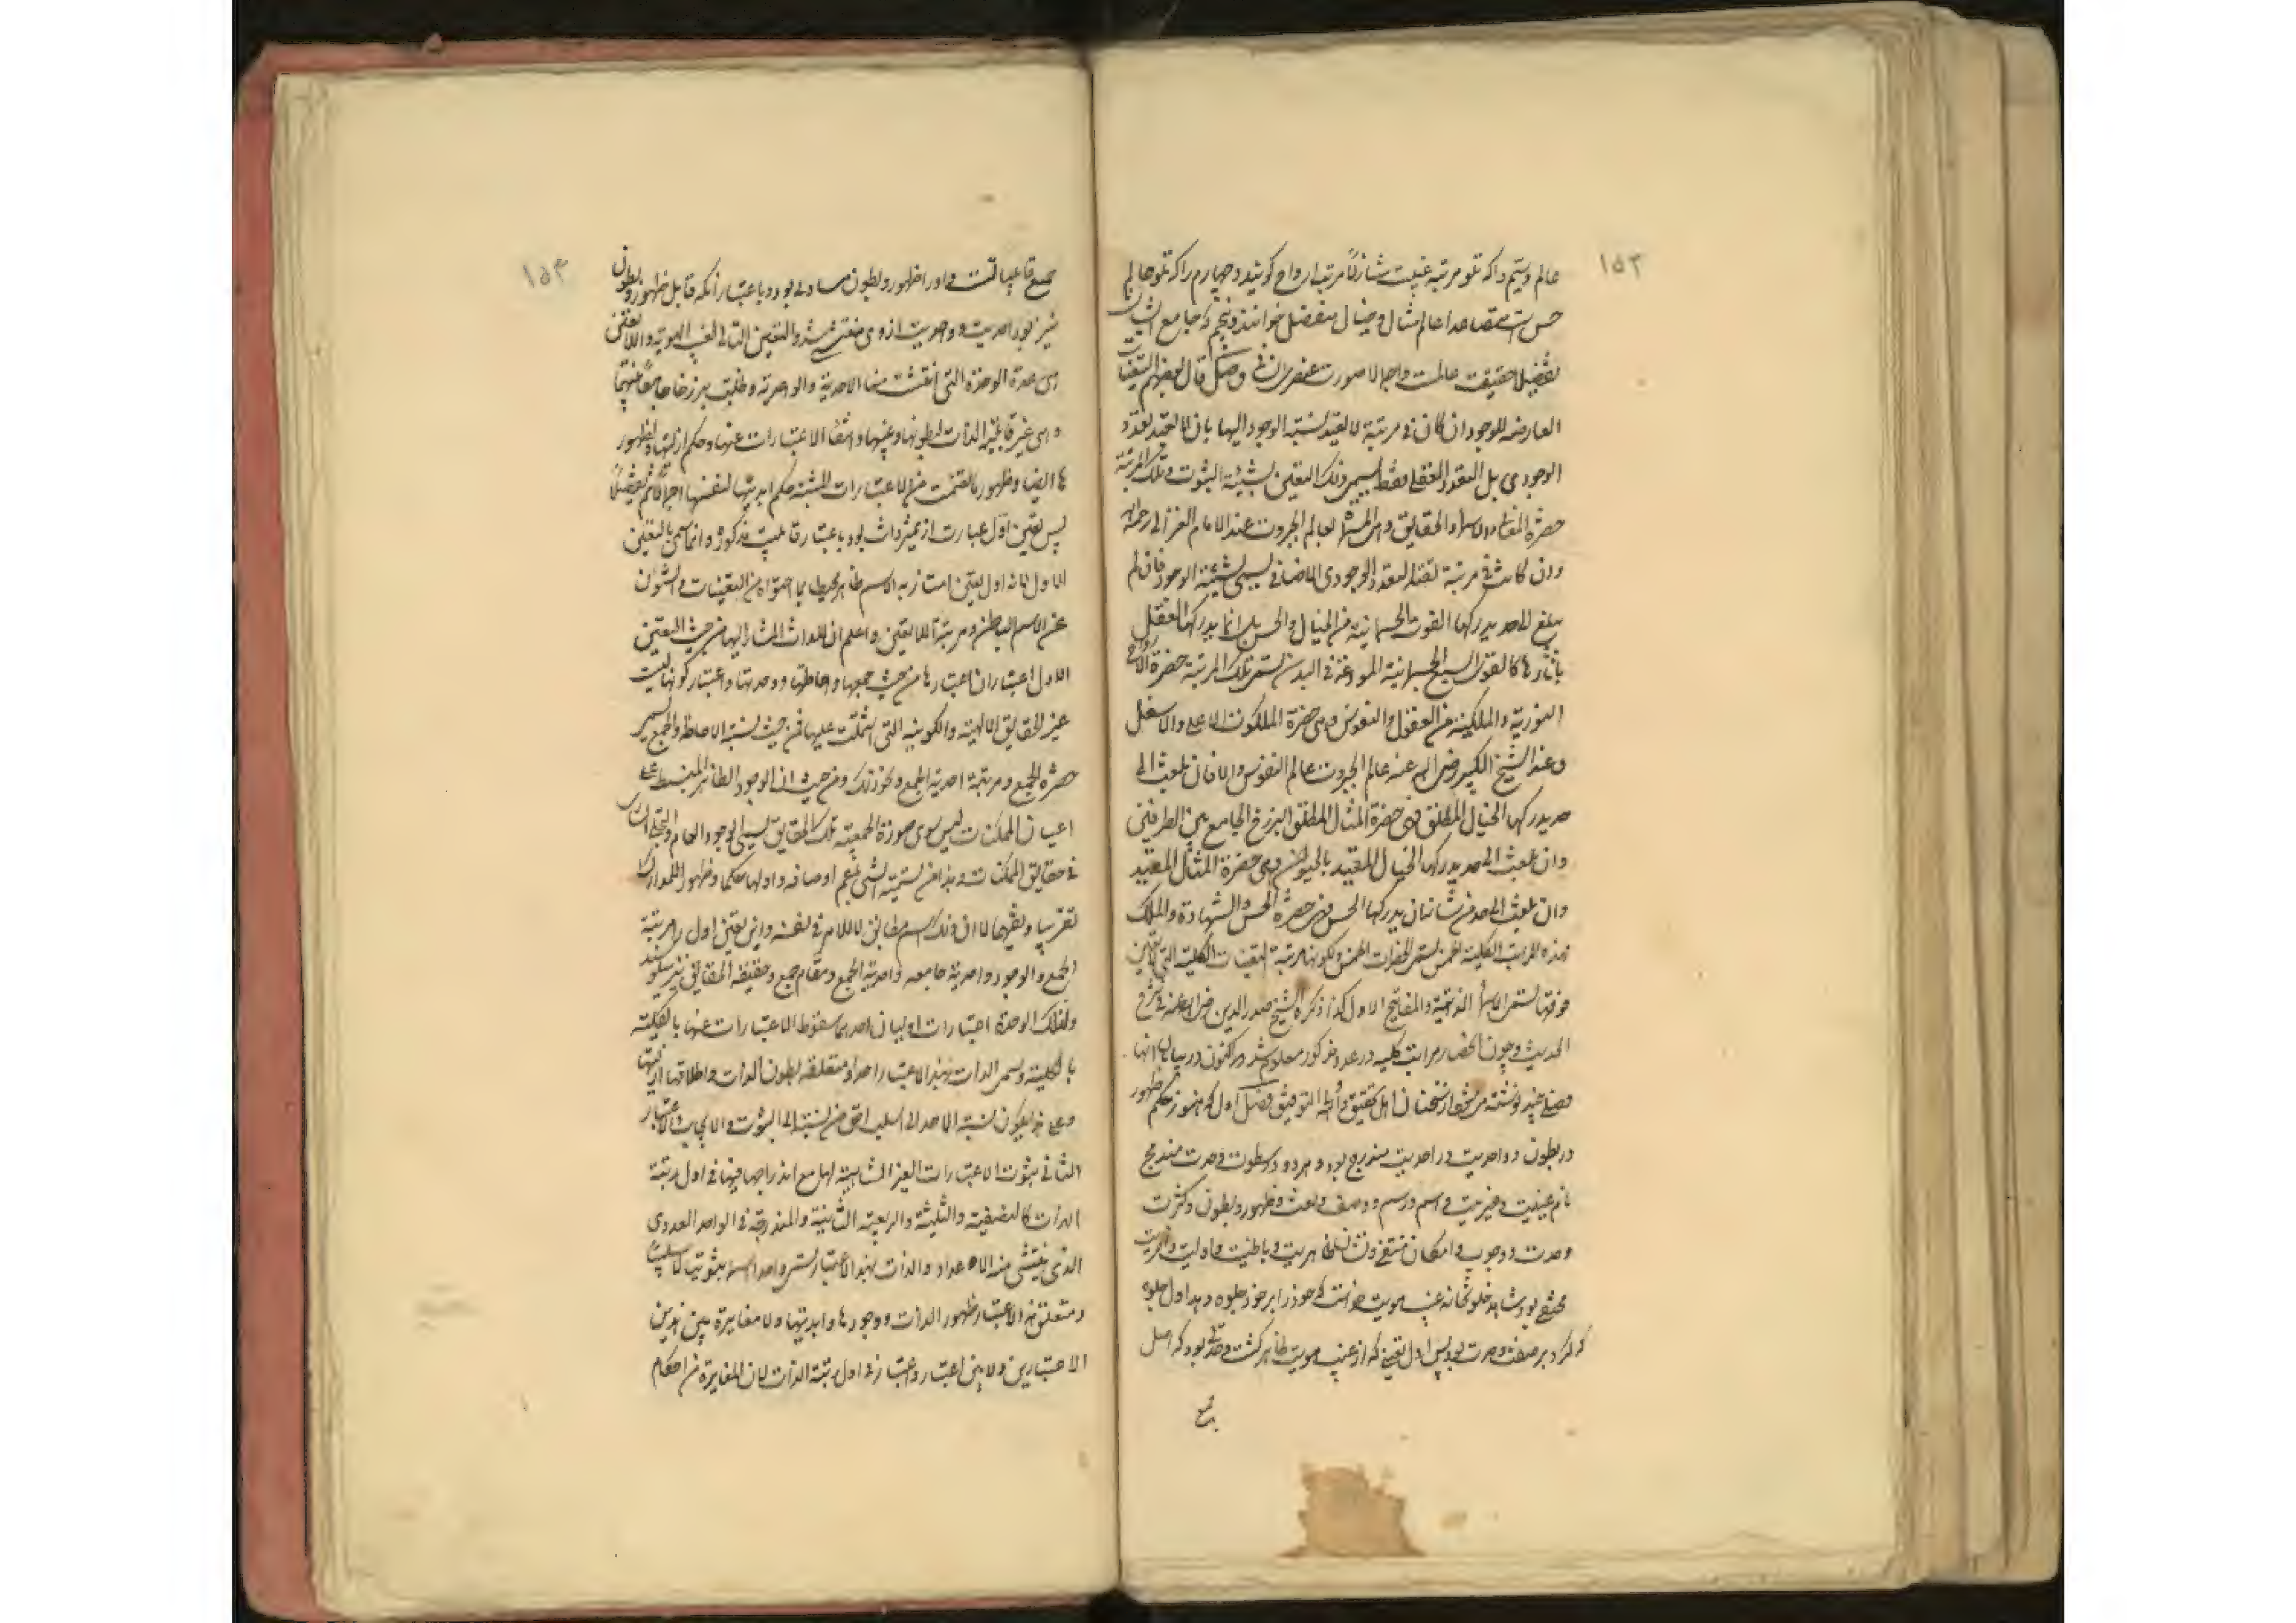 ۱۵۳
عالم و سیم را که تلو مرتبه غیبست شازلاً مرتبه ارواح گویند و چهارم را که تلو عالم
حس است متصاعدا عالم مثال و خیال منفصل خوانند و پنجم که جامع ایشان
تفصیلا حقیقت عالمست و اجمالا صورت عنصری انسانی وصل قال بعضهم التعینات
العارضه للوجود ان کان فی مرتبة لا تقید نسبته الوجود الیها بان لا تتعدد
الوجودی بل التعدد العقلی فقط یسمی ذلک التعین بشیئیة الثبوت و تلک المرتبة
حضرة المعانی و الاسماء و الحقایق و هی المسماة بعالم الجبروت عند الامام الغزالی رحمه الله
و ان کانت فی مرتبة تقبل التعدد الوجودی الاضافی یسمی شیئیة الوجود فان لم
یبلغ الی حد یدرکها القوی الجسمانیة من الخیال و الحس بل انما یدرکها العقل
بآثارها کالقوی الجسمانیة المودعة فی البدن یسمی تلک المرتبة حضرة الارواح
النوریة و الملکیة من العقول و النفوس و هی حضرة الملکوت الاعلی و الاسفل
و عند الشیخ الکبیر رضی الله عنه عالم الجبروت عالم النفوس و الا فان بلغت الی
حد یدرکها الخیال المطلق فهی حضرة المثال المطلق البرزخ الجامع بین الطرفین
و ان بلغت الی حد یدرکها الخیال المقید بالحیوان فهی حضرة المثال المقید
و ان بلغت الی حد من شانان یدرکها الحس فهی حضرة الحس و الشهادة و الملک
فهذه المراتب الکلیة الخمس یسمی الحضرات الخمس و لکونها مرتبة التعینات الکلیة التی لا تعین
فوقها یسمی الاسماء الذاتیة و المفاتیح الاول کذا ذکره الشیخ صدر الدین رضی الله عنه فی شرح
الحدیث و چون انحصار مراتب کلیه در عدد مذکور معلوم شد اکنون در بیان انها
فصلی چند نوشته میشود از سخنان اهل تحقیق و الله التوفیق فصل اول که هنوز حکم ظهور
در بطون و واحدیت در احدیت مندرج بود و هر دو در سطوت وحدت مندمج
نام عینیت و غیریت و اسم و رسم و وصف و نعت و ظهور و بطون و کثرت
وحدت و وجوب و امکان منتفی و نشان ظاهریت و باطنیت و اولیت و آخریت
مختفی بود شاهد خلوتخانه غیب هویت خواست که خود را بر خود جلوه دهد اول جلوه
که کرد بر صفت وحدت بود پس اول تعینی که از غیب هویت ظاهر گشت وحدتی بود که اصل
جمیع
۱۵۴
جمیع قابلیاتست و او را ظهور و بطون مساوی بود و باعتبار آنکه قابل ظهور و بطون
نیز بود احدیت و واحدیت از وی منتشی شد و التعین التالی لغیب الهویة و اللاتعین
هی هذه الوحدة التی انتشت منها الاحدیة و الواحدیة و ظلت برزخا جامعا بینهما
و هی عین قابلیة الذات لبطونها و غیبها و انتفاء الاعتبارات عنها و حکم ازلیتها و لظهور
ها ایضا و ظهور ما تضمنت من الاعتبارات المثبتة حکم ابدیتها لنفسها اجمالا ثم تفصیلا
پس تعین اول عبارت از تمیز ذات بود باعتبار قابلیت مذکوره و انما سمی بالتعین
الاول لانه اول تعین امتاز به الاسم ظاهر المحیط بما احتواه من التعینات و الشؤن
عن الاسم الباطن و مرتبة اللاتعین و اعلم ان للذات المشار الیها من حیث التعین
الاول اعتباران اعتبارها من حیث جمعها و احاطتها و وحدتها و اعتبار کونها لیست
غیر الحقایق الالهیة و الکونیة التی اشتملت علیها فمن حیث نسبة الاحاطة و الجمع یسمی
حضرة الجمع و مرتبة احدیة الجمع و نحو ذلک و من حیث ان الوجود الظاهر المنبسط علی
اعیان الممکنات لیس سوی صورة جمعیة تلک الحقایق یسمی الوجود العام و التجلی الساری
فی حقایق الممکنات و هذا من تسمیة الشی باعم اوصافه و اولها حکما و ظهورا للمدارک
تقریبا و تفهیما لا ان ذلک اسم مطابق للامر فی نفسه و این تعین اول را مرتبة
الجمع و الوجود و احدیة جامعه و احدیة الجمع و مقام جمع و حقیقة الحقایق نیز میگویند
و لتلک الوحدة اعتبارات اولیان احدهما سقوط الاعتبارات عنها بالکلیة
بالکلیة و یسمی الذات بهذا الاعتبار احدا و متعلقه بطون الذات و اطلاقها و ازلیتها
و علی هذا یکون نسبة الاحد الی السلب احق من نسبته الی الثبوت و الایجاب و الاعتبار
الثانی ثبوت الاعتبارات الغیر المتناهیة لها مع اندراجها فیها فی اول رتبة
الذات کالنصفیة و الثلثیة و الربعیة الثابتة و المندرجة فی الواحد العددی
الذی ینتشی منه الاعداد و الذات بهذا الاعتبار یسمی واحدا اسما ثبوتیا لا سلبیا
و متعلق هذا الاعتبار ظهور الذات و وجودها و ابدیتها و لا مغایرة بین هذین
الاعتبارین و لا بین اعتبار و اعتبار فی اول رتبة الذات لان المغایرة من احکام